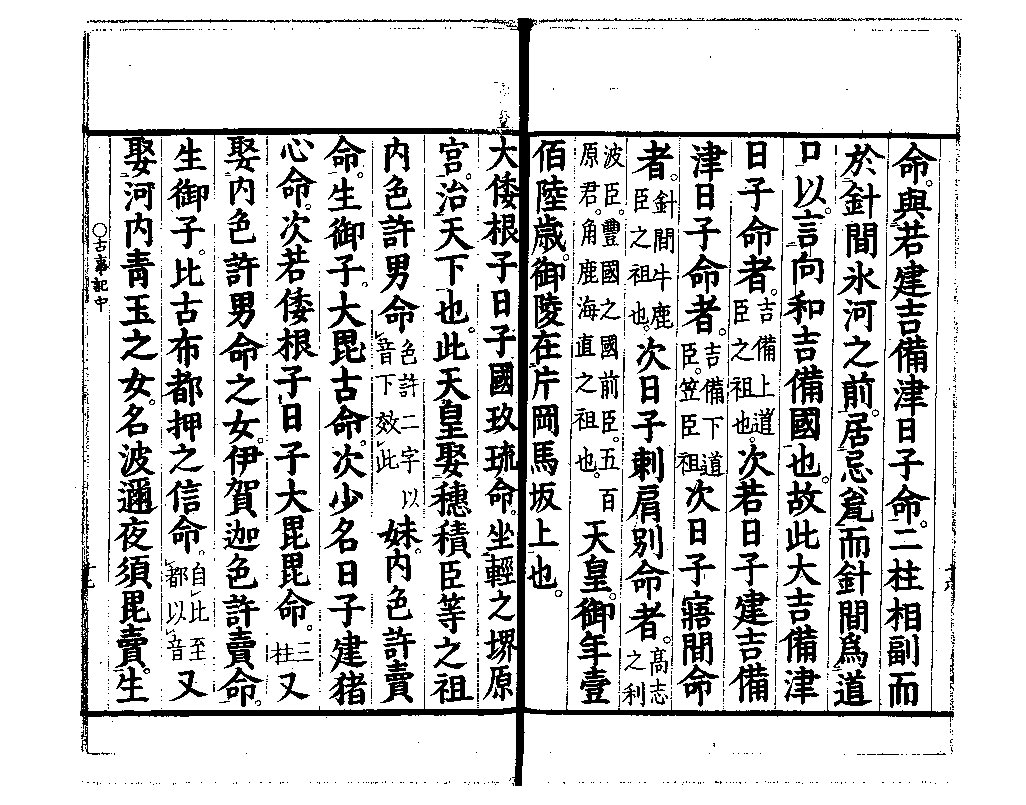 命。與若建吉備津日子命。二柱相副而
於針間氷河之前。居忌瓮而針間爲道
口以。言向和吉備國也。故此大吉備津
日子命者。吉備上道臣之祖也。次若日子建吉備
津日子命者。吉備下道臣。笠臣祖次日子寤間命
者。針間牛鹿臣之祖也。次日子刺肩別命者。高志之利
波臣。豐國之國前臣。五百原君。角鹿海直之祖也。天皇。御年壹
佰陸歳。御陵在片岡馬坂上也。
大倭根子日子國玖琉命。坐輕之堺原
宮。治天下也。此天皇娶穗積臣等之祖
内色許男命色許二字以音下效此妹。内色許賣
命。生御子。大毘古命。次少名日子建猪
心命。次若倭根子日子大毘毘命。三柱又
娶内色許男命之女。伊賀迦色許賣命。
生御子。比古布都押之信命。自比至都以音又
娶河内青玉之女。名波邇夜須毘賣。生
○古事記中